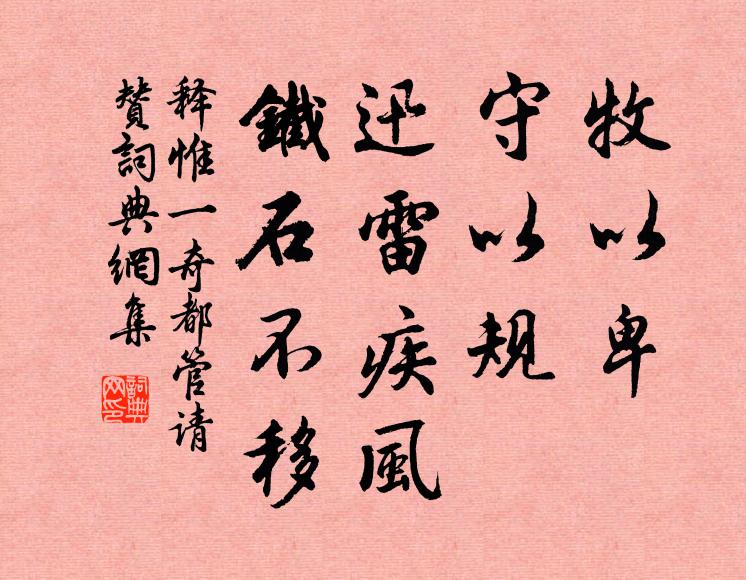 牧以卑
守以規
迅雷疾風
鐵石不移
释惟一奇都管请
赞詞典網集
詞典网印